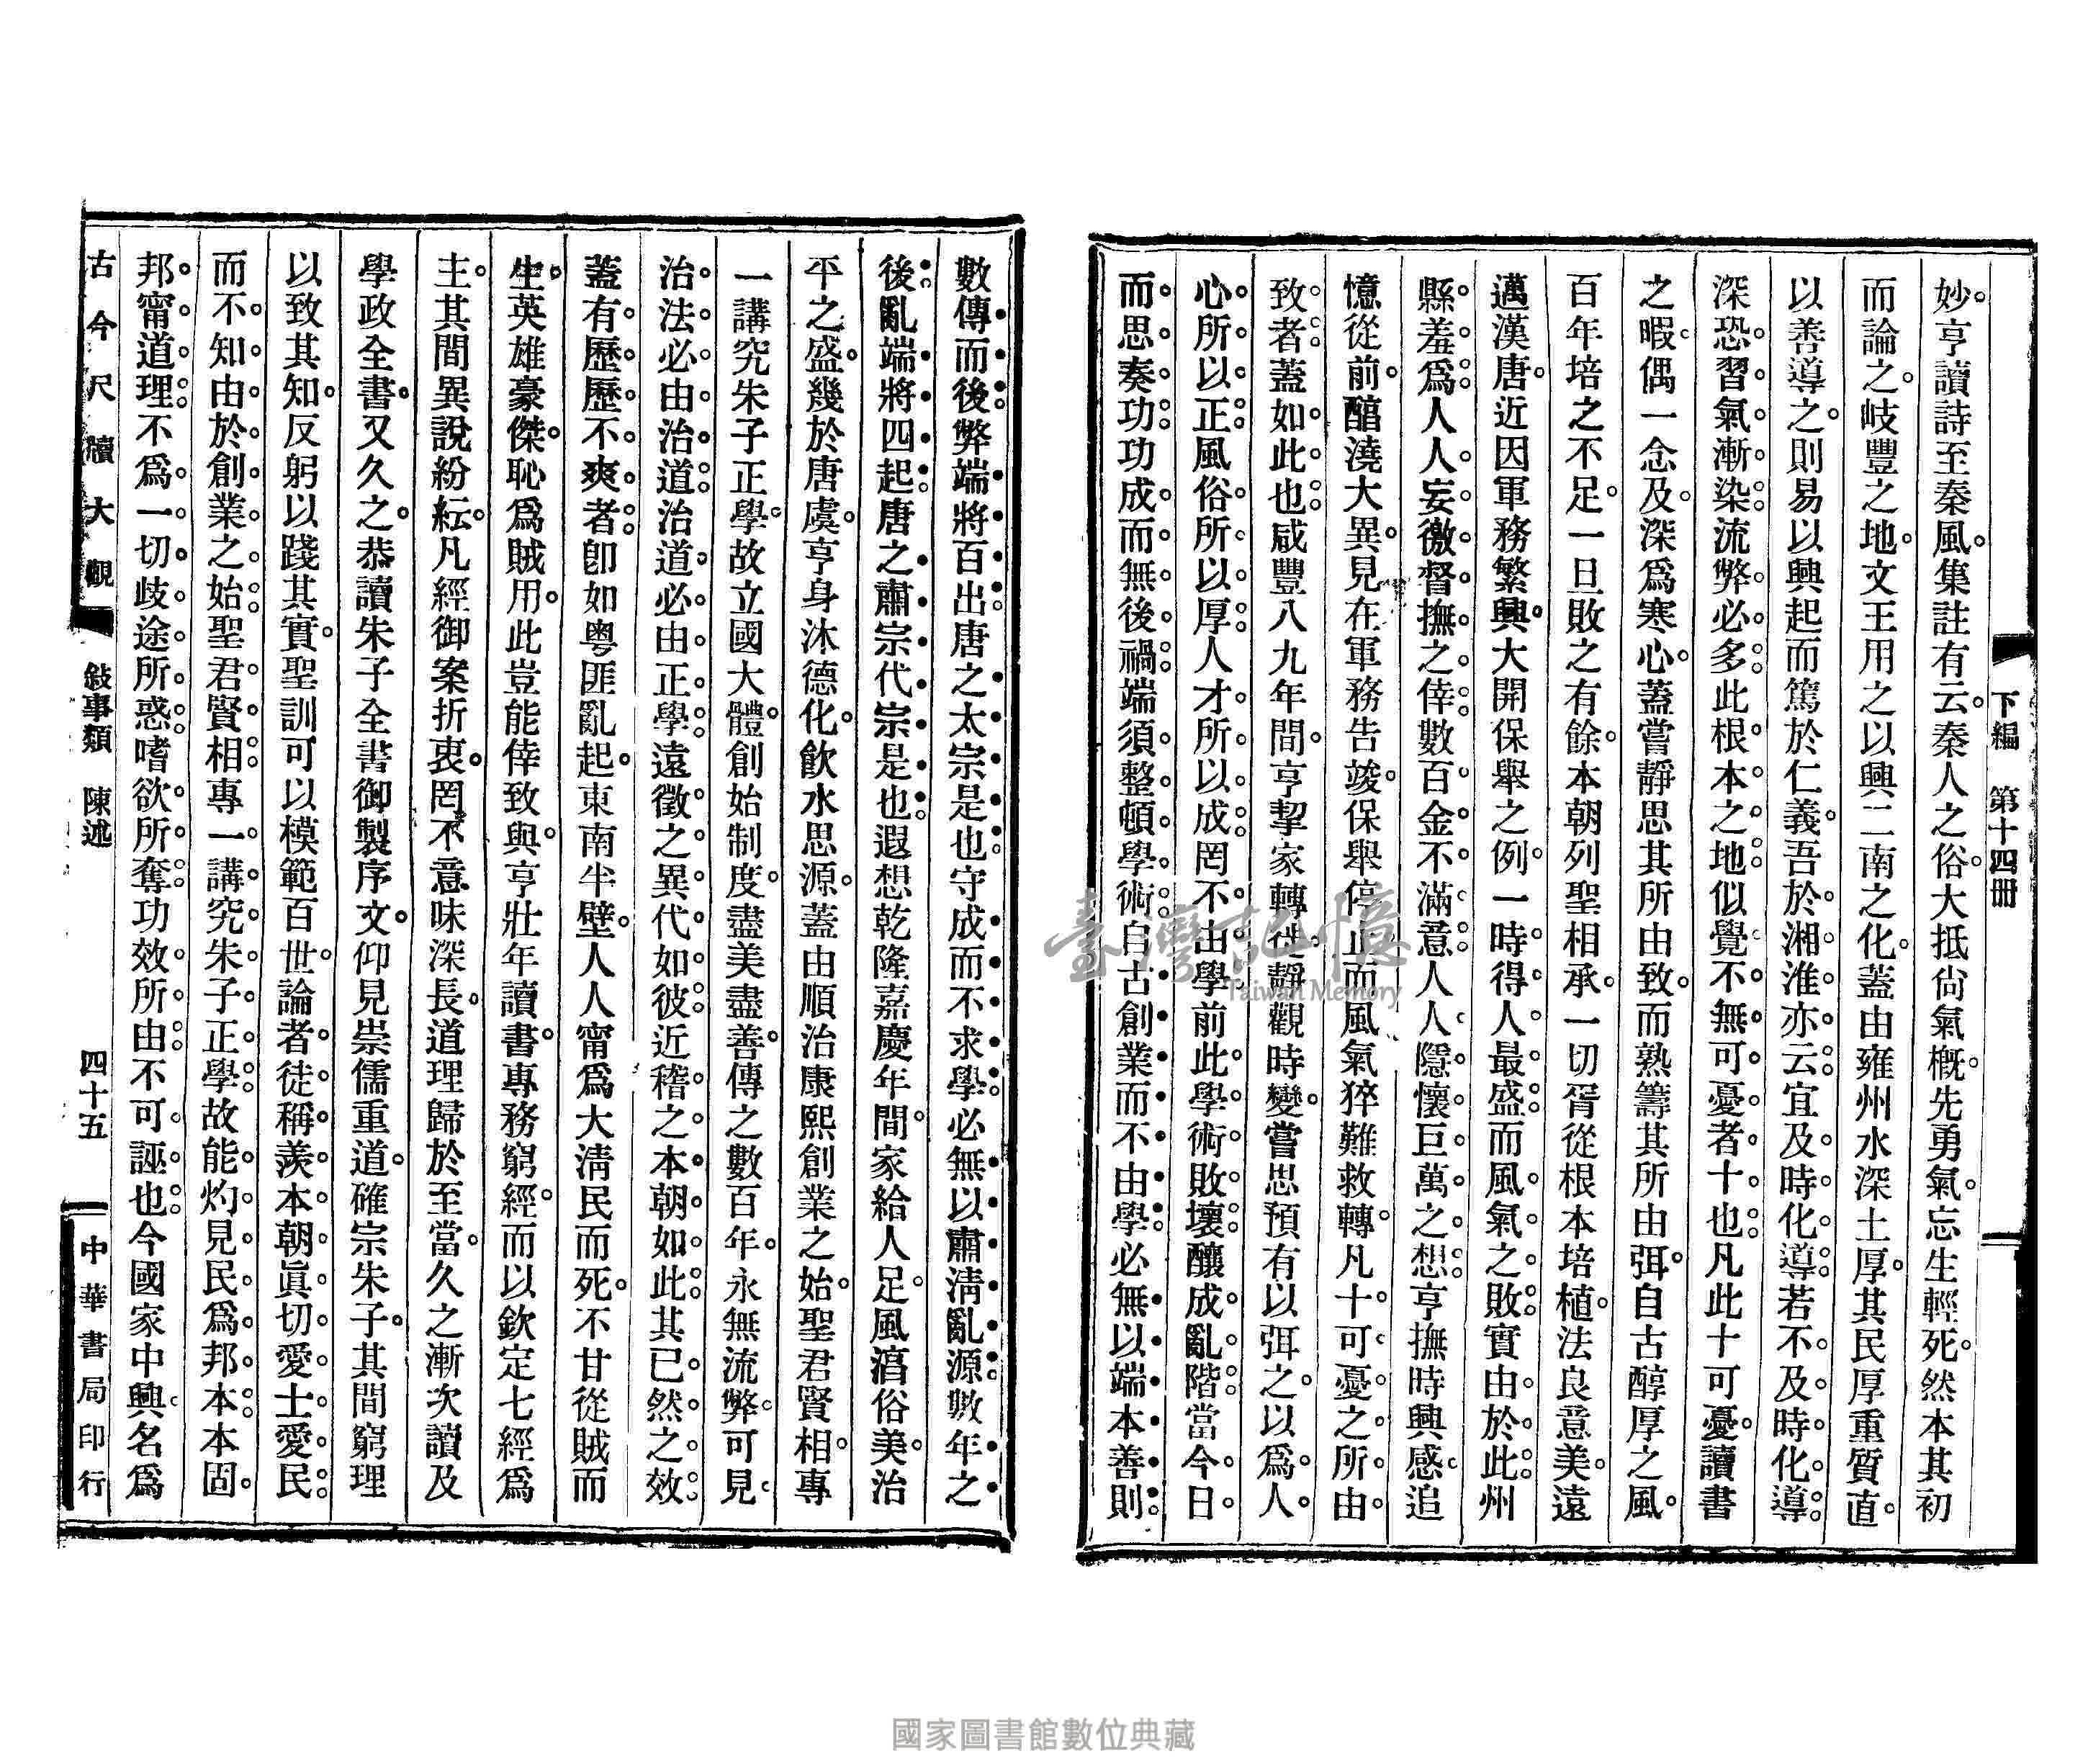 下編 第十四冊
妙。亨讀詩至秦風。集註有云。秦人之俗。大抵尙氣槪。先勇氣。忘生輕死。然本其初
而論之。岐豐之地。文王用之以興二南之化。蓋由雍州水深土厚。其民厚重質直。
以善導之。則易以興起而篤於仁義。吾於湘淮亦云。宜及時化導。若不及時化導。
深恐習氣漸染。流弊必多。此根本之地。似覺不無可憂者十也。凡此十可憂。讀書
之暇。偶一念及。深爲寒心。蓋嘗靜思其所由致。而熟籌其所由弭。自古醇厚之風。
百年培之不足。一旦敗之有餘。本朝列聖相承。一切胥從根本培植。法良意美。遠
邁漢唐。近因軍務繁興。大開保舉之例。一時得人最盛。而風氣之敗。實由於此。州
縣羞爲人人妄徼督撫之倖。數百金不滿意。人人隱懷巨萬之想。亨撫時興感。追
憶從前。醕澆大異。見在軍務告竣。保舉停止。而風氣猝難救轉。凡十可憂之所由
致者。蓋如此也。咸豐八九年間。亨挈家轉徙。靜觀時變。嘗思預有以弭之。以爲人
心所以正。風俗所以厚。人才所以成。罔不由學。前此學術敗壞。釀成亂階。當今日
而思奏功。功成而無後禍端。須整頓學術。自古創業而不由學。必無以端本善則。
數傳而後。弊端將百出。唐之太宗是也。守成而不求學。必無以肅淸亂源。數年之
後。亂端將四起。唐之肅宗代宗是也。遐想乾隆嘉慶年間。家給人足。風湻俗美。治
平之盛。幾於唐虞。亨身沐德化。飮水思源。蓋由順治康熙創業之始。聖君賢相。專
一講究朱子正學。故立國大體。創始制度。盡美盡善。傳之數百年。永無流弊。可見
治法必由治道。治道必由正學。遠徵之異代如彼。近稽之本朝如此。其已然之效。
蓋有歷歷不爽者。卽如粤匪亂起。東南半壁。人人甯爲大淸民而死。不甘從賊而
生。英雄豪傑。恥爲賊用。此豈能倖致與。亨壯年讀書。專務窮經。而以欽定七經爲
主。其間異說紛紜。凡經御案折衷。罔不意味深長。道理歸於至當。久之漸次讀及
學政全書。又久之。恭讀朱子全書御製序文。仰見崇儒重道。確宗朱子。其間窮理
以致其知。反躬以踐其實。聖訓可以模範百世。論者徒稱羨本朝眞切愛士愛民。
而不知由於創業之始。聖君賢相。專一講究朱子正學。故能灼見民爲邦本。本固
邦甯道理。不爲一切歧途所惑。嗜欲所奪。功效所由。不可誣也。今國家中興。名爲
古今尺牘大觀 敍事類 陳述 四十五 中華書局印行
臺灣記憶
Taiwan Memory
國家圖書館數位典藏